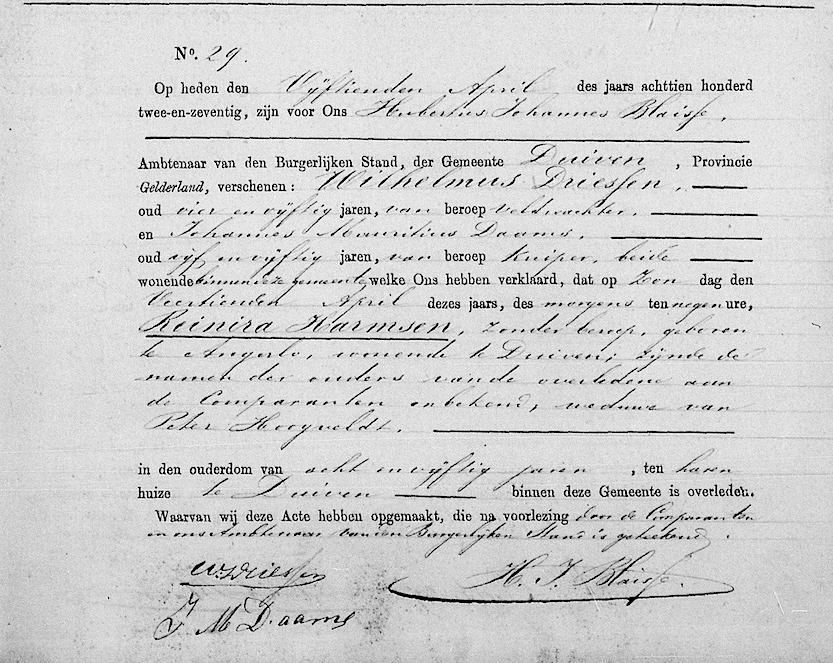 No. 29.
Op heden den Vijftienden April des jaars achttien honderd
twee-en-zeventig, zijn voor Ons Hubertus Johannes Blaisse,
Ambtenaar van den Burgerlijken Stand, der Gemeente Duiven, Provincie
Gelderland, verschenen: Wilhelmus Driessen,
oud vier en vijftig jaren, van beroep veldwachter,
en Johannes Mauritius Daams,
oud vijf en vijftig jaren, van beroep Kuiper, beide
wonende binnen deze gemeente, welke Ons hebben verklaard, dat op Zon dag den
Veertienden April dezes jaars, des morgens ten negen ure,
Reinira Harmsen, zonder beroep, geboren
te Angerlo, wonende te Duiven; zijnde de
namen der ouders van de overledene aan
de Comparanten onbekend, weduwe van
Peter Hooyveldt.
in den ouderdom van acht en vijftig jaren, ten haren
huize te Duiven binnen deze Gemeente is overleden.
Waarvan wij deze Acte hebben opgemaakt, die na voorlezing door de Comparanten
en ons Ambtenaar van den Burgerlijken Stand is geteekend.
W Driessen H. J. Blaisse.
J M Daams